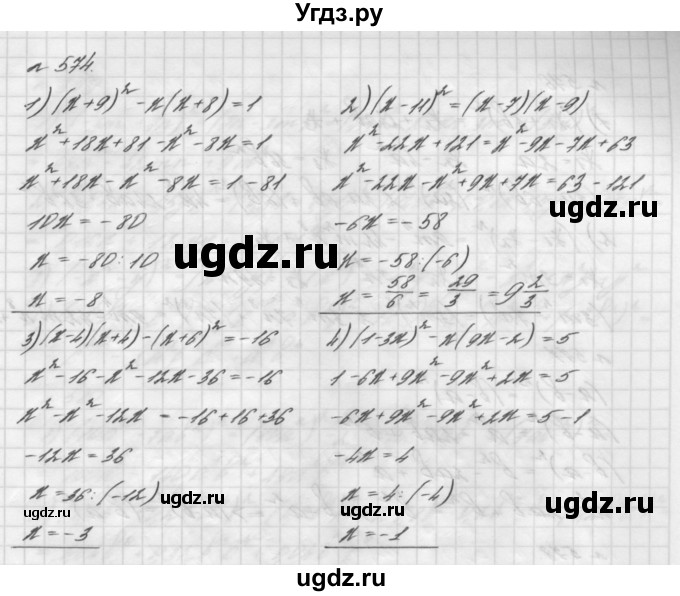 Угдз.ру
№ 574.
1) (x+9)² - x(x+8) = 1
x² + 18x + 81 - x² - 8x = 1
x² + 18x - x² - 8x = 1 - 81
10x = -80
x = -80 : 10
x = -8
2) (x-11)² = (x-7)(x-9)
x² - 22x + 121 = x² - 9x - 7x + 63
x² - 22x - x² + 9x + 7x = 63 - 121
-6x = -58
x = -58 : (-6)
x = 58/6 = 29/3 = 9 2/3
3) (x-4)(x+4) - (x+6)² = -16
x² - 16 - x² - 12x - 36 = -16
x² - x² - 12x = -16 + 16 + 36
-12x = 36
x = 36 : (-12)
x = -3
4) (1-3x)² - x(9x-2) = 5
1 - 6x + 9x² - 9x² + 2x = 5
-6x + 9x² - 9x² + 2x = 5 - 1
-4x = 4
x = 4 : (-4)
x = -1
ugdz.ru
ugdz.ru
ugdz.ru
ugdz.ru
ugdz.ru
ugdz.ru
ugdz.ru